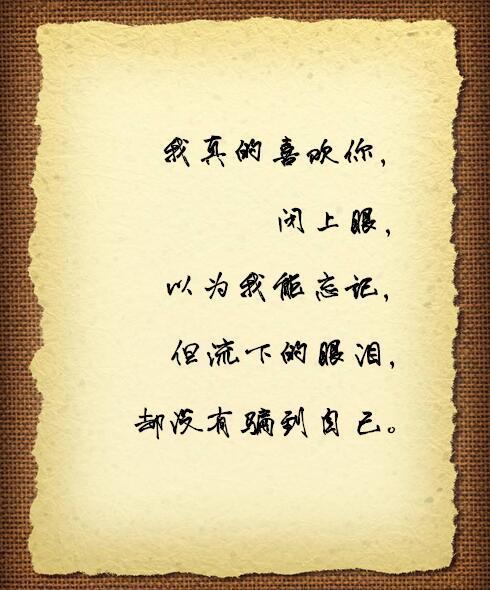 我真的喜欢你，
闭上眼，
以为我能忘记，
但流下的眼泪，
却没有骗到自己。